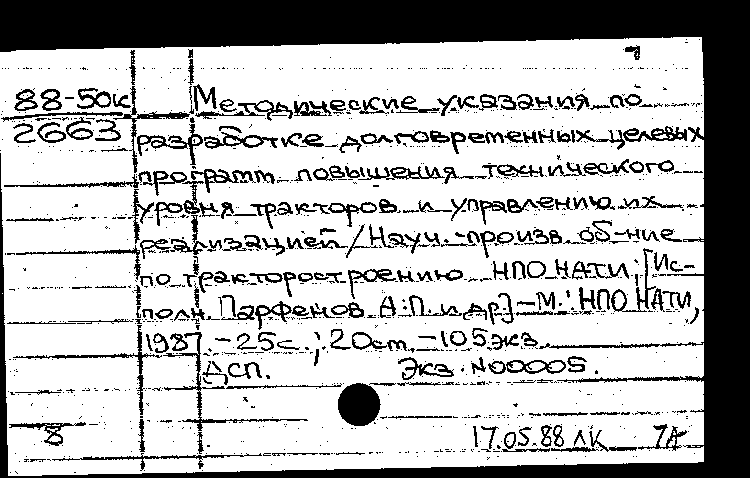 88-50к Методические указания по
2663 разработке долговременных целевых
программ повышения технического
уровня тракторов и управлению их
реализацией / Науч.-произв. об-ние
по тракторостроению НПО НАТИ; [Ис-
полн. Парфенов А.П. и др.] - М.: НПО НАТИ,
1987. - 25с.; 20см. - 105экз.
ДСП. Экз. N00005.
8 17.05.88 ЛК 7А